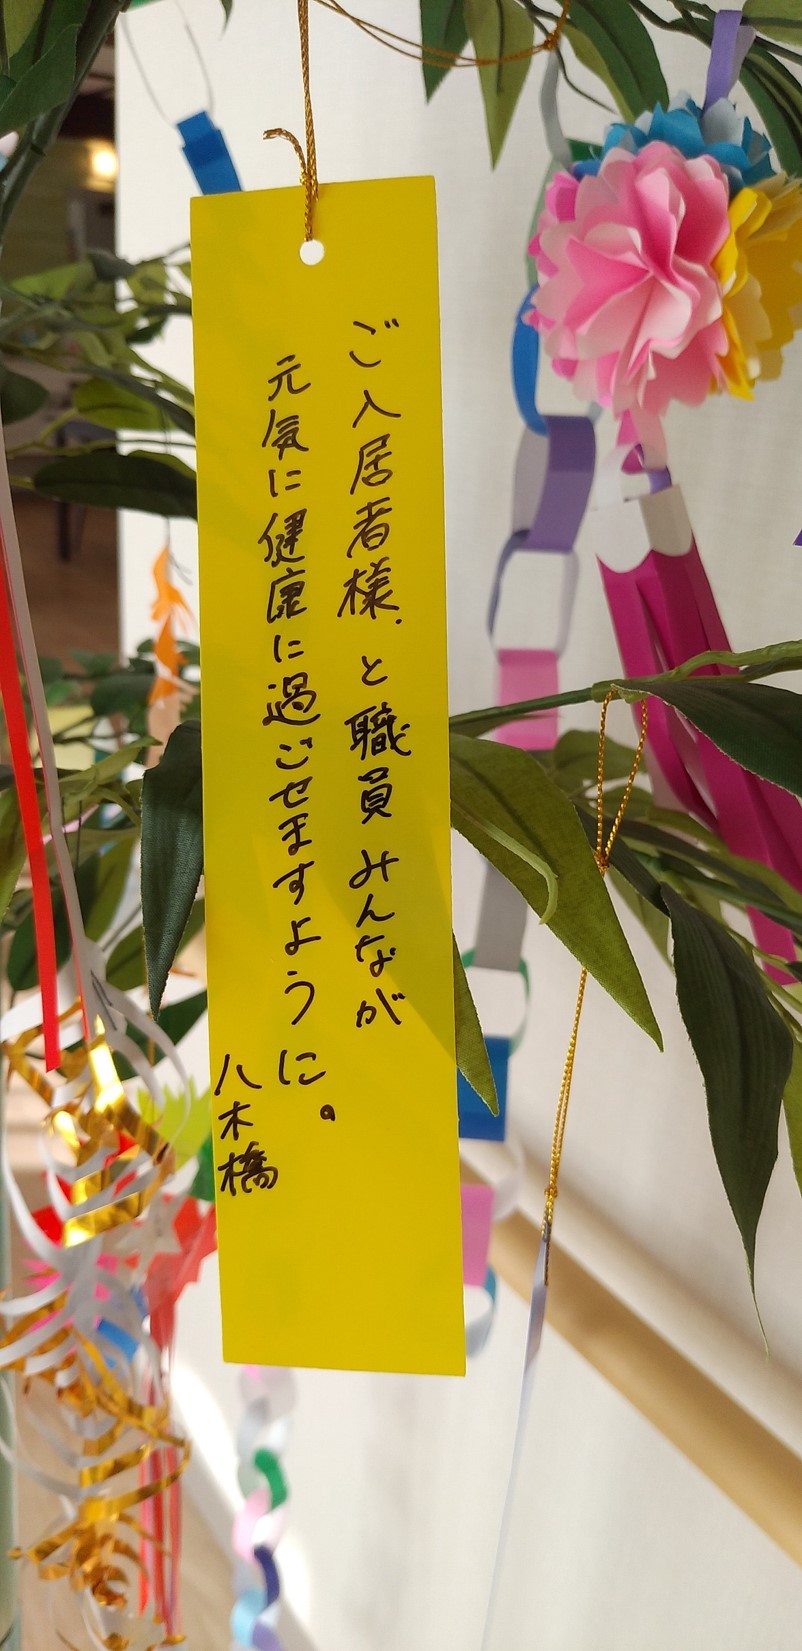 ご入居者様.と職員みんなが
元気に健康に過ごせますように。
八木橋